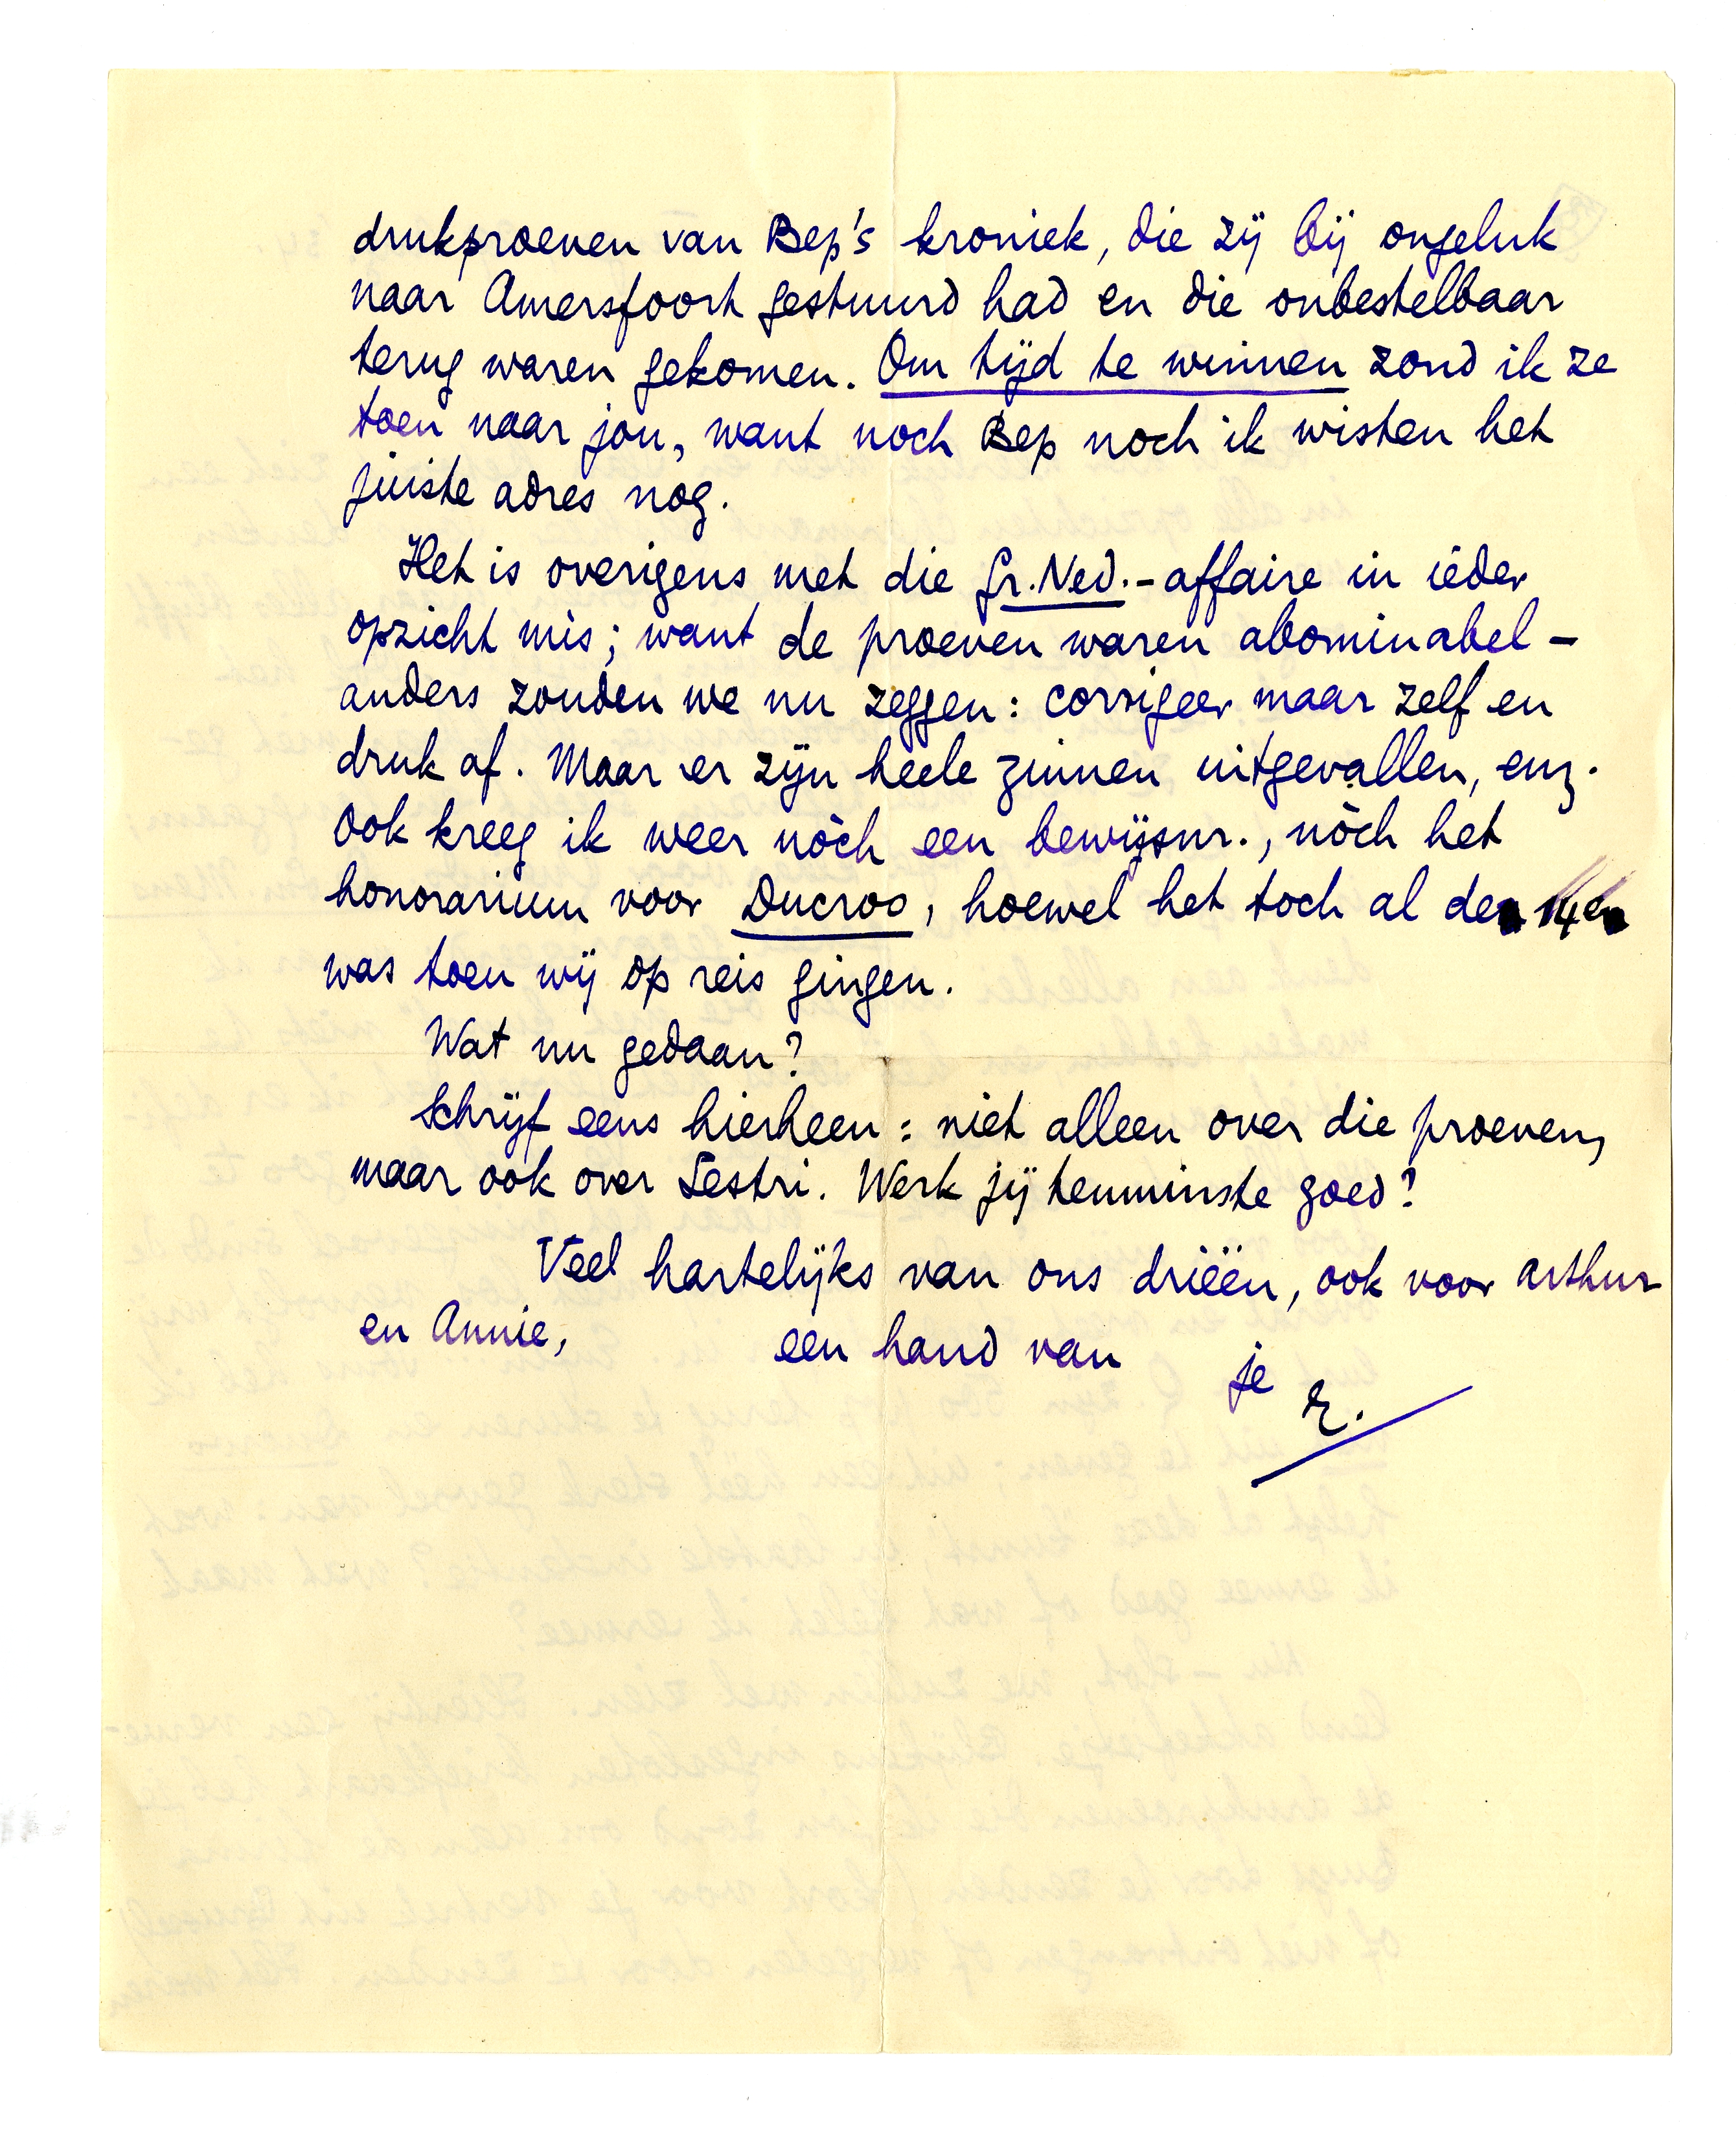 drukproeven van Bep's kroniek, die zij bij ongeluk
naar Amersfoort gestuurd had en die onbestelbaar
terug waren gekomen. Om tijd te winnen zond ik ze
toen naar jou, want noch Bep noch ik wisten het
juiste adres nog.
Het is overigens met die Gr. Ned.-affaire in ieder
opzicht mis; want de proeven waren abominabel –
anders zouden we nu zeggen: corrigeer maar zelf en
druk af. Maar er zijn heele zinnen uitgevallen, enz.
Ook kreeg ik weer nòch een bewijsnr., nòch het
honorarium voor Ducroo, hoewel het toch al de 14e
was toen wij op reis gingen.
Wat nu gedaan?
Schrijf eens hierheen: niet alleen over die proeven,
maar ook over Sestri. Werk jij tenminste goed?
Veel hartelijks van ons drieën, ook voor Arthur
en Annie, een hand van je
E.